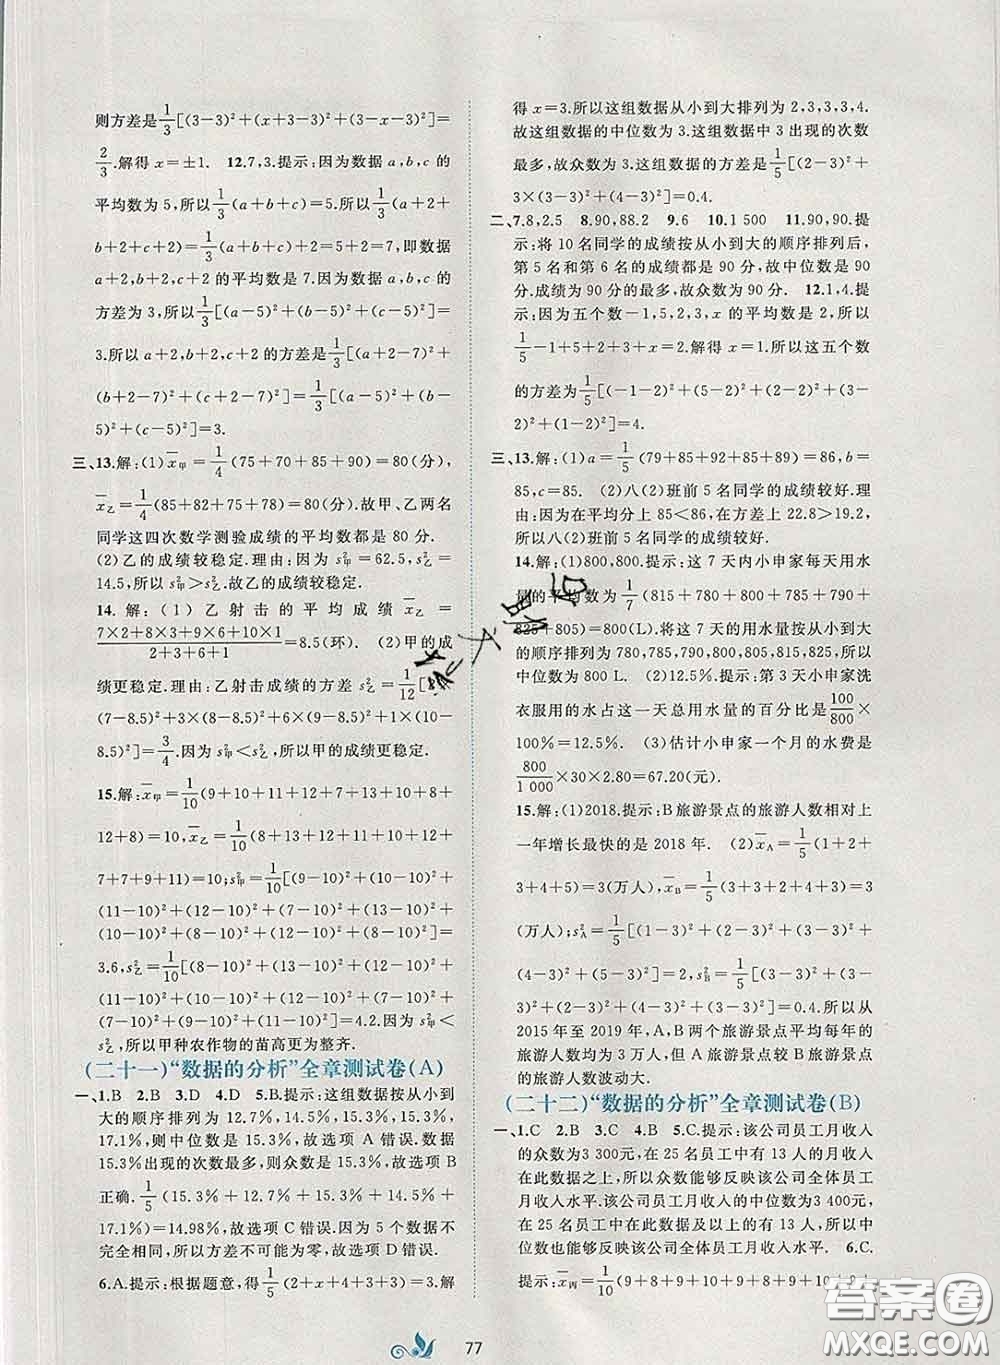 则方差是1/3[(3-3)²+(x+3-3)²+(3-x-3)²]=
2/3.解得 x=±1. 12.7,3.提示:因为数据 a,b,c 的
平均数为 5,所以1/3(a+b+c)=5.所以1/3(a+2+
b+2+c+2)=1/3(a+b+c)+2=5+2=7,即数据
a+2,b+2,c+2的平均数是 7.因为数据 a,b,c 的
方差为 3,所以1/3[(a-5)²+(b-5)²+(c-5)²]=
3.所以 a+2,b+2,c+2 的方差是1/3[(a+2-7)²+
(b+2-7)²+(c+2-7)²]=1/3[(a-5)²+(b-
5)²+(c-5)²]=3.
三、13.解:(1)x̄甲=1/4(75+70+85+90)=80(分),
x̄乙=1/4(85+82+75+78)=80(分).故甲、乙两名
同学这四次数学测验成绩的平均数都是 80 分.
(2)乙的成绩较稳定.理由:因为 s²甲=62.5,s²乙=
14.5,所以 s²甲>s²乙.故乙的成绩较稳定.
14.解:(1)乙射击的平均成绩 x̄乙=
(7×2+8×3+9×6+10×1)/(2+3+6+1)=8.5(环). (2)甲的成
绩更稳定.理由:乙射击成绩的方差 s²乙=1/12[
(7-8.5)²+3×(8-8.5)²+6×(9-8.5)²+1×(10-
8.5)²]=3/4.因为 s²甲<s²乙,所以甲的成绩更稳定.
15.解:x̄甲=1/10(9+10+11+12+7+13+10+8+
12+8)=10,x̄乙=1/10(8+13+12+11+10+12+
7+7+9+11)=10;s²甲=1/10[(9-10)²+(10-10)²+
(11-10)²+(12-10)²+(7-10)²+(13-10)²+
(10-10)²+(8-10)²+(12-10)²+(8-10)²]=
3.6,s²乙=1/10[(8-10)²+(13-10)²+(12-10)²+
(11-10)²+(10-10)²+(12-10)²+(7-10)²+
(7-10)²+(9-10)²+(11-10)²]=4.2.因为 s²甲<
s²乙,所以甲种农作物的苗高更为整齐.
(二十一)“数据的分析”全章测试卷(A)
一、1.B 2.B 3.D 4.D 5.B.提示:这组数据按从小到
大的顺序排列为 12.7%,14.5%,15.3%,15.3%,
17.1%,则中位数是 15.3%,故选项 A 错误.因为数据
15.3%出现的次数最多,则众数是 15.3%,故选项 B
正确.1/5(15.3%+12.7%+15.3%+14.5%+
17.1%)=14.98%,故选项 C 错误.因为 5 个数据不
完全相同,所以方差不可能为零,故选项 D 错误.
6.A.提示:根据题意,得1/5(2+x+4+3+3)=3.解
得 x=3.所以这组数据从小到大排列为 2,3,3,3,4.
故这组数据的中位数为 3.这组数据中 3 出现的次数
最多,故众数为 3.这组数据的方差是1/5[(2-3)²+
3×(3-3)²+(4-3)²]=0.4.
二、7.8,2.5 8.90,88.2 9.6 10.1 500 11.90,90.提
示:将 10 名同学的成绩按从小到大的顺序排列后,
第 5 名和第 6 名的成绩都是 90 分,故中位数是 90
分.成绩为 90 分的最多,故众数为 90 分. 12.1,4.提
示:因为五个数-1,5,2,3,x 的平均数是 2,所以
1/5(-1+5+2+3+x)=2.解得 x=1.所以这五个数
的方差为1/5[(-1-2)²+(5-2)²+(2-2)²+(3-
2)²+(1-2)²]=4.
三、13.解:(1)a=1/5(79+85+92+85+89)=86,b=
85,c=85. (2)八(2)班前 5 名同学的成绩较好.理
由:因为在平均分上 85<86,在方差上 22.8>19.2,
所以八(2)班前 5 名同学的成绩较好.
14.解:(1)800,800.提示:这 7 天内小申家每天用水
量的平均数为1/7(815+780+800+785+790+
825+805)=800(L).将这 7 天的用水量按从小到大
的顺序排列为 780,785,790,800,805,815,825,所以
中位数为 800 L. (2)12.5%.提示:第 3 天小申家洗
衣服用的水占这一天总用水量的百分比是100/800×
100%=12.5%. (3)估计小申家一个月的水费是
800/1 000×30×2.80=67.20(元).
15.解:(1)2018.提示:B 旅游景点的旅游人数相对上
一年增长最快的是 2018 年. (2)x̄A=1/5(1+2+
3+4+5)=3(万人),x̄B=1/5(3+2+3+4+3)=3
(万人);s²A=1/5[(1-3)²+(2-3)²+(3-3)²+
(4-3)²+(5-3)²]=2,s²B=1/5[(3-3)²+(2-
3)²+(3-3)²+(4-3)²+(3-3)²]=0.4.所以从
2015 年至 2019 年,A、B 两个旅游景点平均每年的
旅游人数均为 3 万人,但 A 旅游景点较 B 旅游景点
的旅游人数波动大.
(二十二)“数据的分析”全章测试卷(B)
一、1.C 2.B 3.C 4.B 5.C.提示:该公司员工月收入
的众数为3 300元,在 25 名员工中有 13 人的月收入
在此数据之上,所以众数能够反映该公司全体员工
月收入水平.该公司员工月收入的中位数为3 400元,
在 25 名员工中在此数据及以上的有 13 人,所以中
位数也能够反映该公司全体员工月收入水平. 6.C.
提示:x̄丙=1/10(9+8+9+10+9+
77
答案圈
MXQE.COM